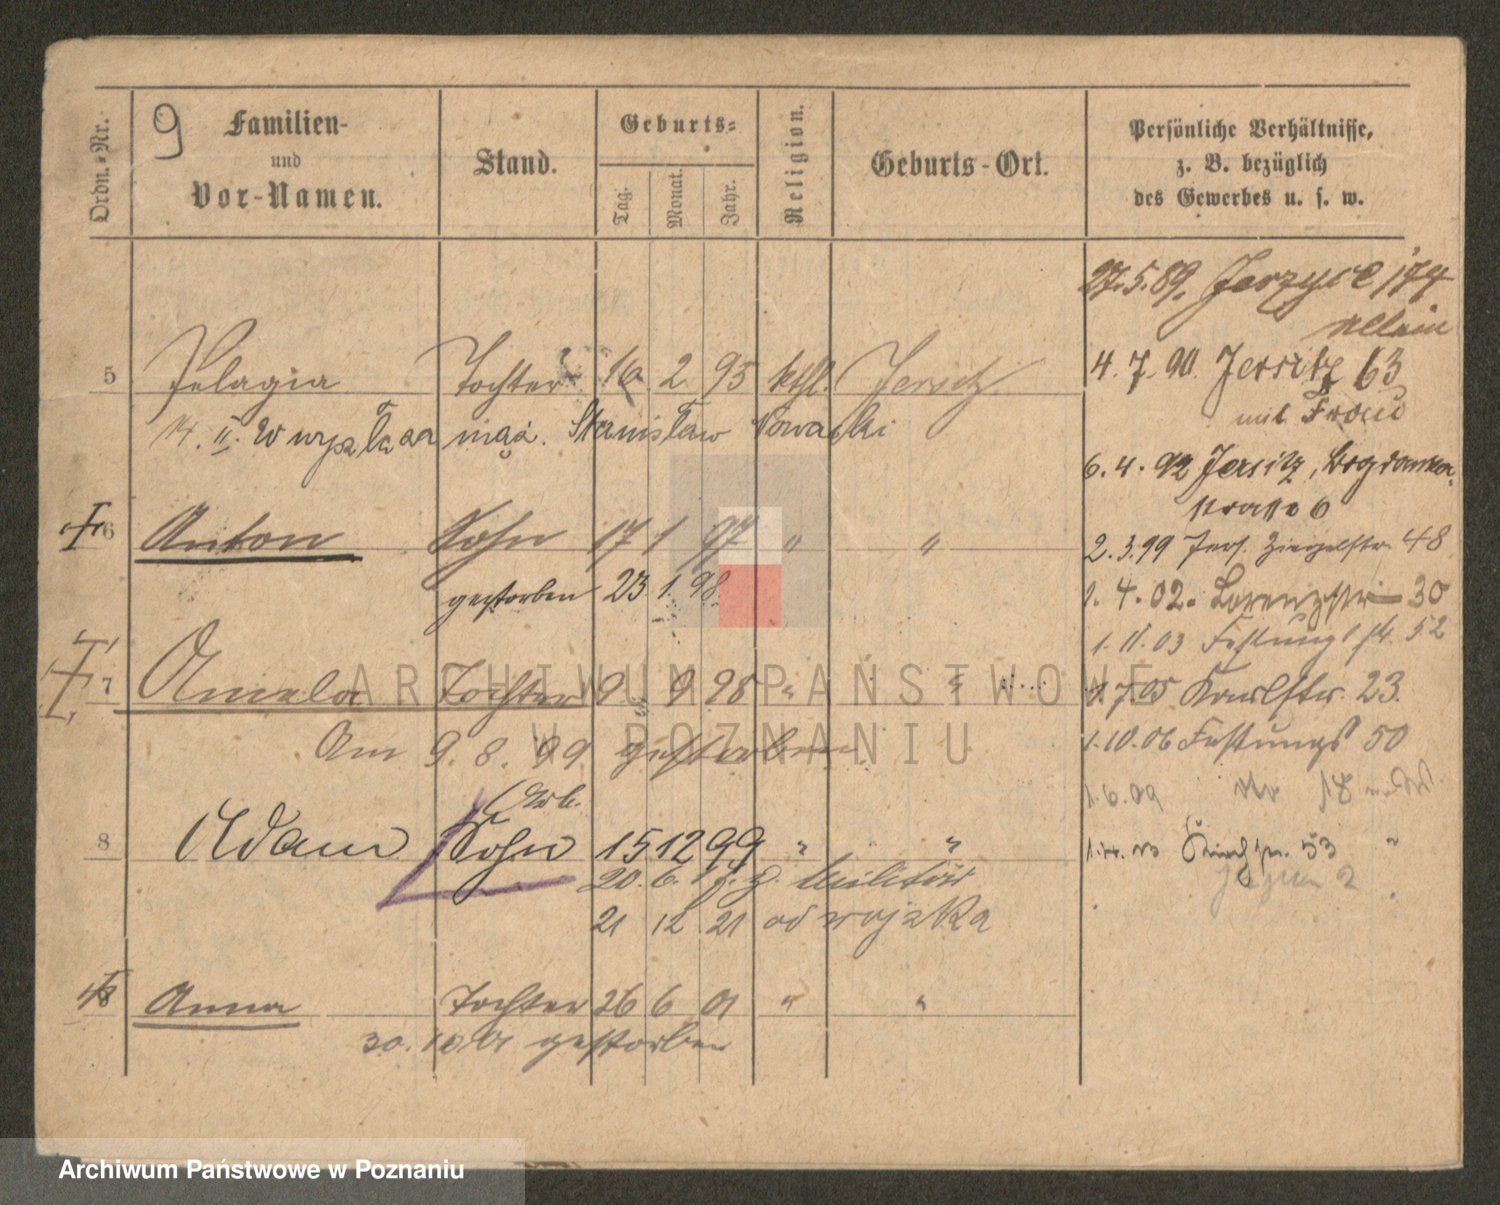 9
Ordn.-Nr.
Familien-
und
Vor-Namen.
Stand.
Geburts-
Tag.
Monat.
Jahr.
Religion.
Geburts-Ort.
Persönliche Verhältnisse,
z. B. bezüglich
des Gewerbes u. s. w.
27.5.89. Jerzyce 174
allein
5 Pelagia Tochter 16 2 95 kthl. Jersitz
4.7.90. Jersitz 63
mit Frau
14. II. W wyszła za mąż. Stanisław Nowacki
6.4.92 Jersitz, Bogdanka
strasse 6
6 Anton Sohn 17 1 97 " "
2.3.99 Jers. Ziegelstr. 48
gestorben 23 1. 98.
1.4.02. Lorenzstr 30
1.11.03 Festungsstr. 52
7 Amela Tochter 9 9 98 " "
1.7.05 Karlstr. 23.
Am 9.8.99 gestorben.
1.10.06 Festungs 50
1.6.09 18
Arb.
8 Adam Sohn 15 12 99 " "
53 "
20.6. z. Militär
2
21 12 21 od wojska
Anna Tochter 26 6 01 " "
30.10.01 gestorben
ARCHIWUM PAŃSTWOWE
W POZNANIU
Archiwum Państwowe w Poznaniu